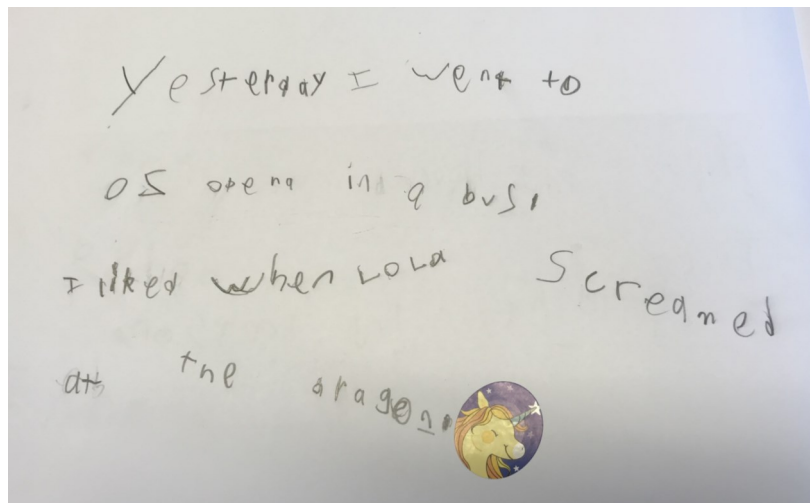 Yesterday I went to
OZ opera in a bus.
I liked when LOLa Screamed
at the dragon.